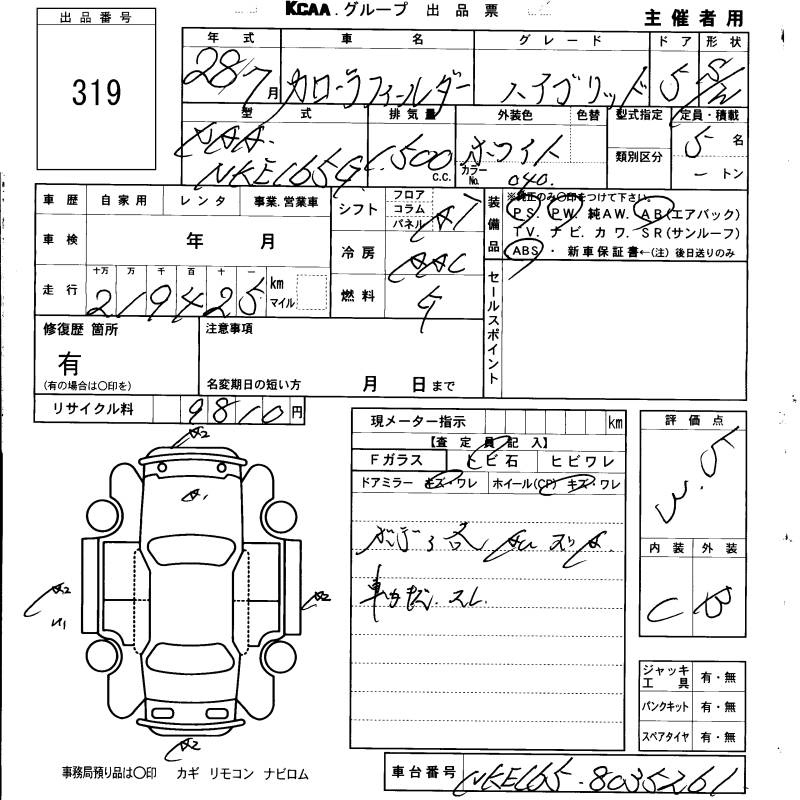 KCAA.グループ 出品票
主催者用
出品番号
319
年式 車名 グレード ドア 形状
28/7月 カローラフィールダー ハイブリッド 5 S/W
型式 排気量 外装色 色替 型式指定 定員・積載
DAA- 1,500 c.c. ホワイト 5名
NKE165G カラーNo. 040 類別区分 ートン
車歴 自家用 レンタ 事業.営業車
シフト フロア コラム パネル AT
装備品 ※純正のみ〇印をつけて下さい。
PS. PW. 純AW. AB(エアバック)
TV. ナビ. カワ. SR(サンルーフ)
ABS ・ 新車保証書←(注) 後日送りのみ
車検 年 月
冷房 AAC
走行 十万 万 千 百 十 一
219425 km マイル
燃料 ガ
セールスポイント
修復歴 箇所
有
(有の場合は〇印を)
注意事項
名変期日の短い方 月 日まで
リサイクル料 9810円
現メーター指示 km
【査定員記入】
Fガラス トビ石 ヒビワレ
ドアミラー キズ・ワレ ホイール(CP) キズ・ワレ
評価点
3.5
内装 外装
C B
A2
A1
A2
A2
A2
ジャッキ工具 有・無
パンクキット 有・無
スペアタイヤ 有・無
事務局預り品は〇印 カギ リモコン ナビロム
車台番号 NKE165-8035261